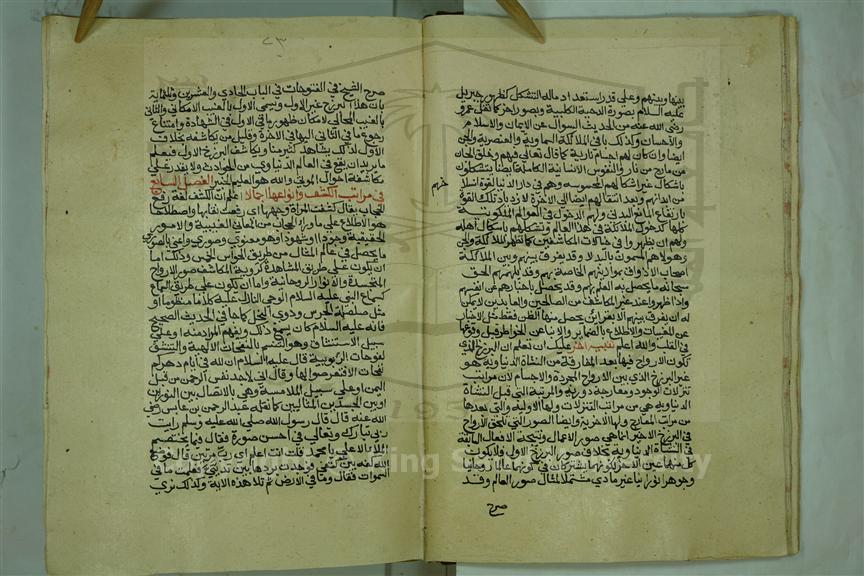 بينها وبينهم وعلى قدر استعداد ماله التشكل كظهور جبريل
عليه السلام بصورة الدحية الكلبية وبصور اخر كما نقل عن عمر
رضي الله عنه من الحديث السوال عن الايمان والاسلام
والاحسان وكذلك باقي الملائكة السماوية والعنصرية والجن
ايضا وان كان لهم اجسام نارية كما قال تعالى فيهم وخلق الجان
من مارج من نار والنفوس الانسانية الكاملة ايضا يتشكلون
باشكال غير اشكالهم المحسوسة وهم في دار الدنيا لقوة انسلاخهم
من ابدانهم وبعد انتقالهم ايضا الى الاخرة لازدياد تلك القوة
بارتفاع المانع البدني ولهم الدخول في العوالم الملكوتية
كلها كدخول الملائكة في هذا العالم وتشكلهم باشكال اهله
ولهم ان يظهروا في خيالات المكاشفين كما تظهر الملائكة والجن
وهولاء هم المسمون بالبدلا وقد يفرق بينهم وبين الملائكة
اصحاب الاذواق بموازينهم الخاصة بهم وقد يلهمهم الحق
سبحانه ما يحصل به العلم بهم وقد يحصل باخبارهم عن انفسهم
واذا ظهروا عند غير المكاشف من الصالحين والعابدين لا يمكن
له ان يفرق بينهم الا بقراين يحصل منها الظن فقط مثل الاخبار
عن المغيبات والاطلاع بالضماير والانبا عن الخواطر قبل وقوعها
في القلب والله اعلم تنبيه اخر عليك ان تعلم ان البرزخ الذي
تكون الارواح فيها بعد المفارقة من النشاة الدنياوية هو
غير البرزخ الذي بين الارواح المجردة والاجسام لان مراتب
تنزلات الوجود ومعارجه دورية والمرتبة التي قبل النشاة
الدنياوية هي من مراتب التنزلات ولها الاولية والتي بعدها
من مراتب المعارج ولها الاخرية وايضا الصور التي تلحق الارواح
في البرزخ الاخير انما هي صور الاعمال ونتيجة الافعال السابقة
في النشاة الدنياوية بخلاف صور البرزخ الاول فلا يكون
كل منهما عين الاخر لكنهما يشتركان في كونهما عالما روحانيا
وجوهرا نورانيا غير مادي مشتملا لمثال صور العالم وقد
صرح
صرح الشيخ في الفتوحات في الباب الحادي والعشرين وثلثماية
بان هذا البرزخ غير الاول ويسمى الاول بالغيب الامكاني والثاني
بالغيب المحالي لامكان ظهور ما في الاول في الشهادة وامتناع
رجوع ما في الثاني اليها في الاخرة وقليل من يكاشفه بخلاف
الاول لذلك يشاهد كثير منا ويكاشف البرزخ الاول فيعلم
ما يريد ان يقع في العالم الدنياوي من الحوادث ولا يقدر على
مكاشفة احوال الموتى والله هو العليم الخبير الفصل السابع
في مراتب الكشف وانواعها اجمالا اعلم ان الكشف لغة رفع
الحجاب يقال كشفت المراة وجهها اي رفعت نقابها واصطلاحا
هو الاطلاع على ما وراء الحجاب من المعاني الغيبية والامور
الحقيقية وجودا او شهودا وهو معنوي وصوري واعني بالصوري
ما يحصل في عالم المثال من طريق الحواس الخمس وذلك اما
ان يكون على طريق المشاهدة كروية المكاشف صور الارواح
المتجسدة والانوار الروحانية واما ان يكون على طريق السماع
كسماع النبي عليه السلام الوحي النازل عليه كلاما منظوما او
مثل صلصلة الجرس ودوي النحل كما جا في الحديث الصحيح
فانه عليه السلام كان يسمع ذلك ويفهم المراد منه او على
سبيل الاستنشاق وهو التنسم بالنفحات الالهية والتنشق
لفوحات الربوبية قال عليه السلام ان لله في ايام دهركم
نفحات الا فتعرضوا لها وقال اني لاجد نفس الرحمن من قبل
اليمن او على سبيل الملامسة وهي بالاتصال بين النورين
او بين الجسدين المثاليين كما نقله عبد الرحمن بن عايس رضي
الله عنه قال قال رسول الله صلى الله عليه وسلم رايت
ربي تبارك وتعالى في احسن صورة فقال فيما يختصم
الملا الاعلى يا محمد قلت انت اعلم اي رب مرتين قال فوضع
الله كفه بين كتفي فوجدت بردها بين ثديي فعلمت ما في
السموات وما في الارض ثم تلا هذه الاية وكذلك نري